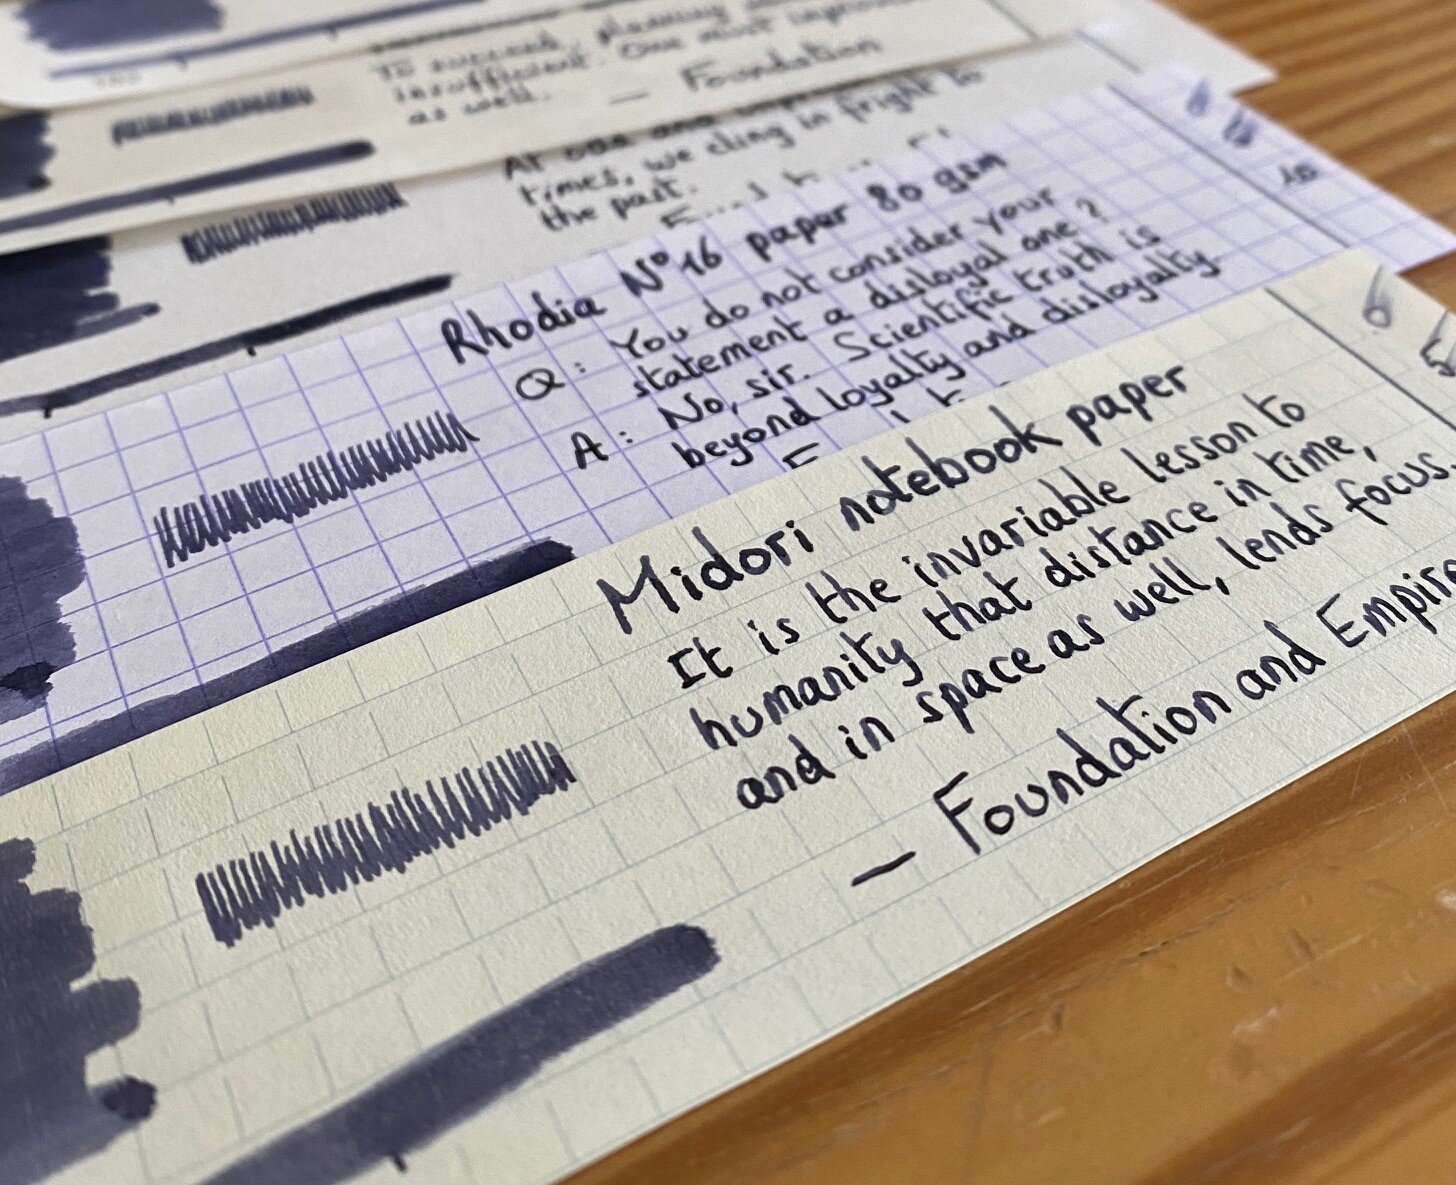 To succeed, planning
insufficient. One must improvise
as well.
— Foundation
At odd and
times, we cling in fright to
the past.
Rhodia N°16 paper 80 gsm
Q: You do not consider your
statement a disloyal one?
A: No, sir. Scientific truth is
beyond loyalty and disloyalty
Midori notebook paper
It is the invariable lesson to
humanity that distance in time,
and in space as well, lends focus.
— Foundation and Empire
10